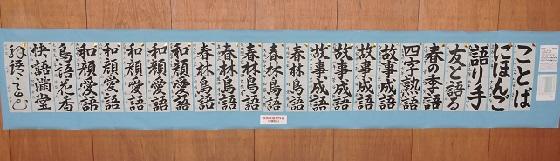 ことば
にほんご
語り手
友と語る
春の季語
四字熟語
故事成語
故事成語
故事成語
故事成語
春林鳥語
春林鳥語
春林鳥語
春林鳥語
春林鳥語
和顔愛語
和顔愛語
和顔愛語
和顔愛語
和顔愛語
鳥語花香
快語満堂